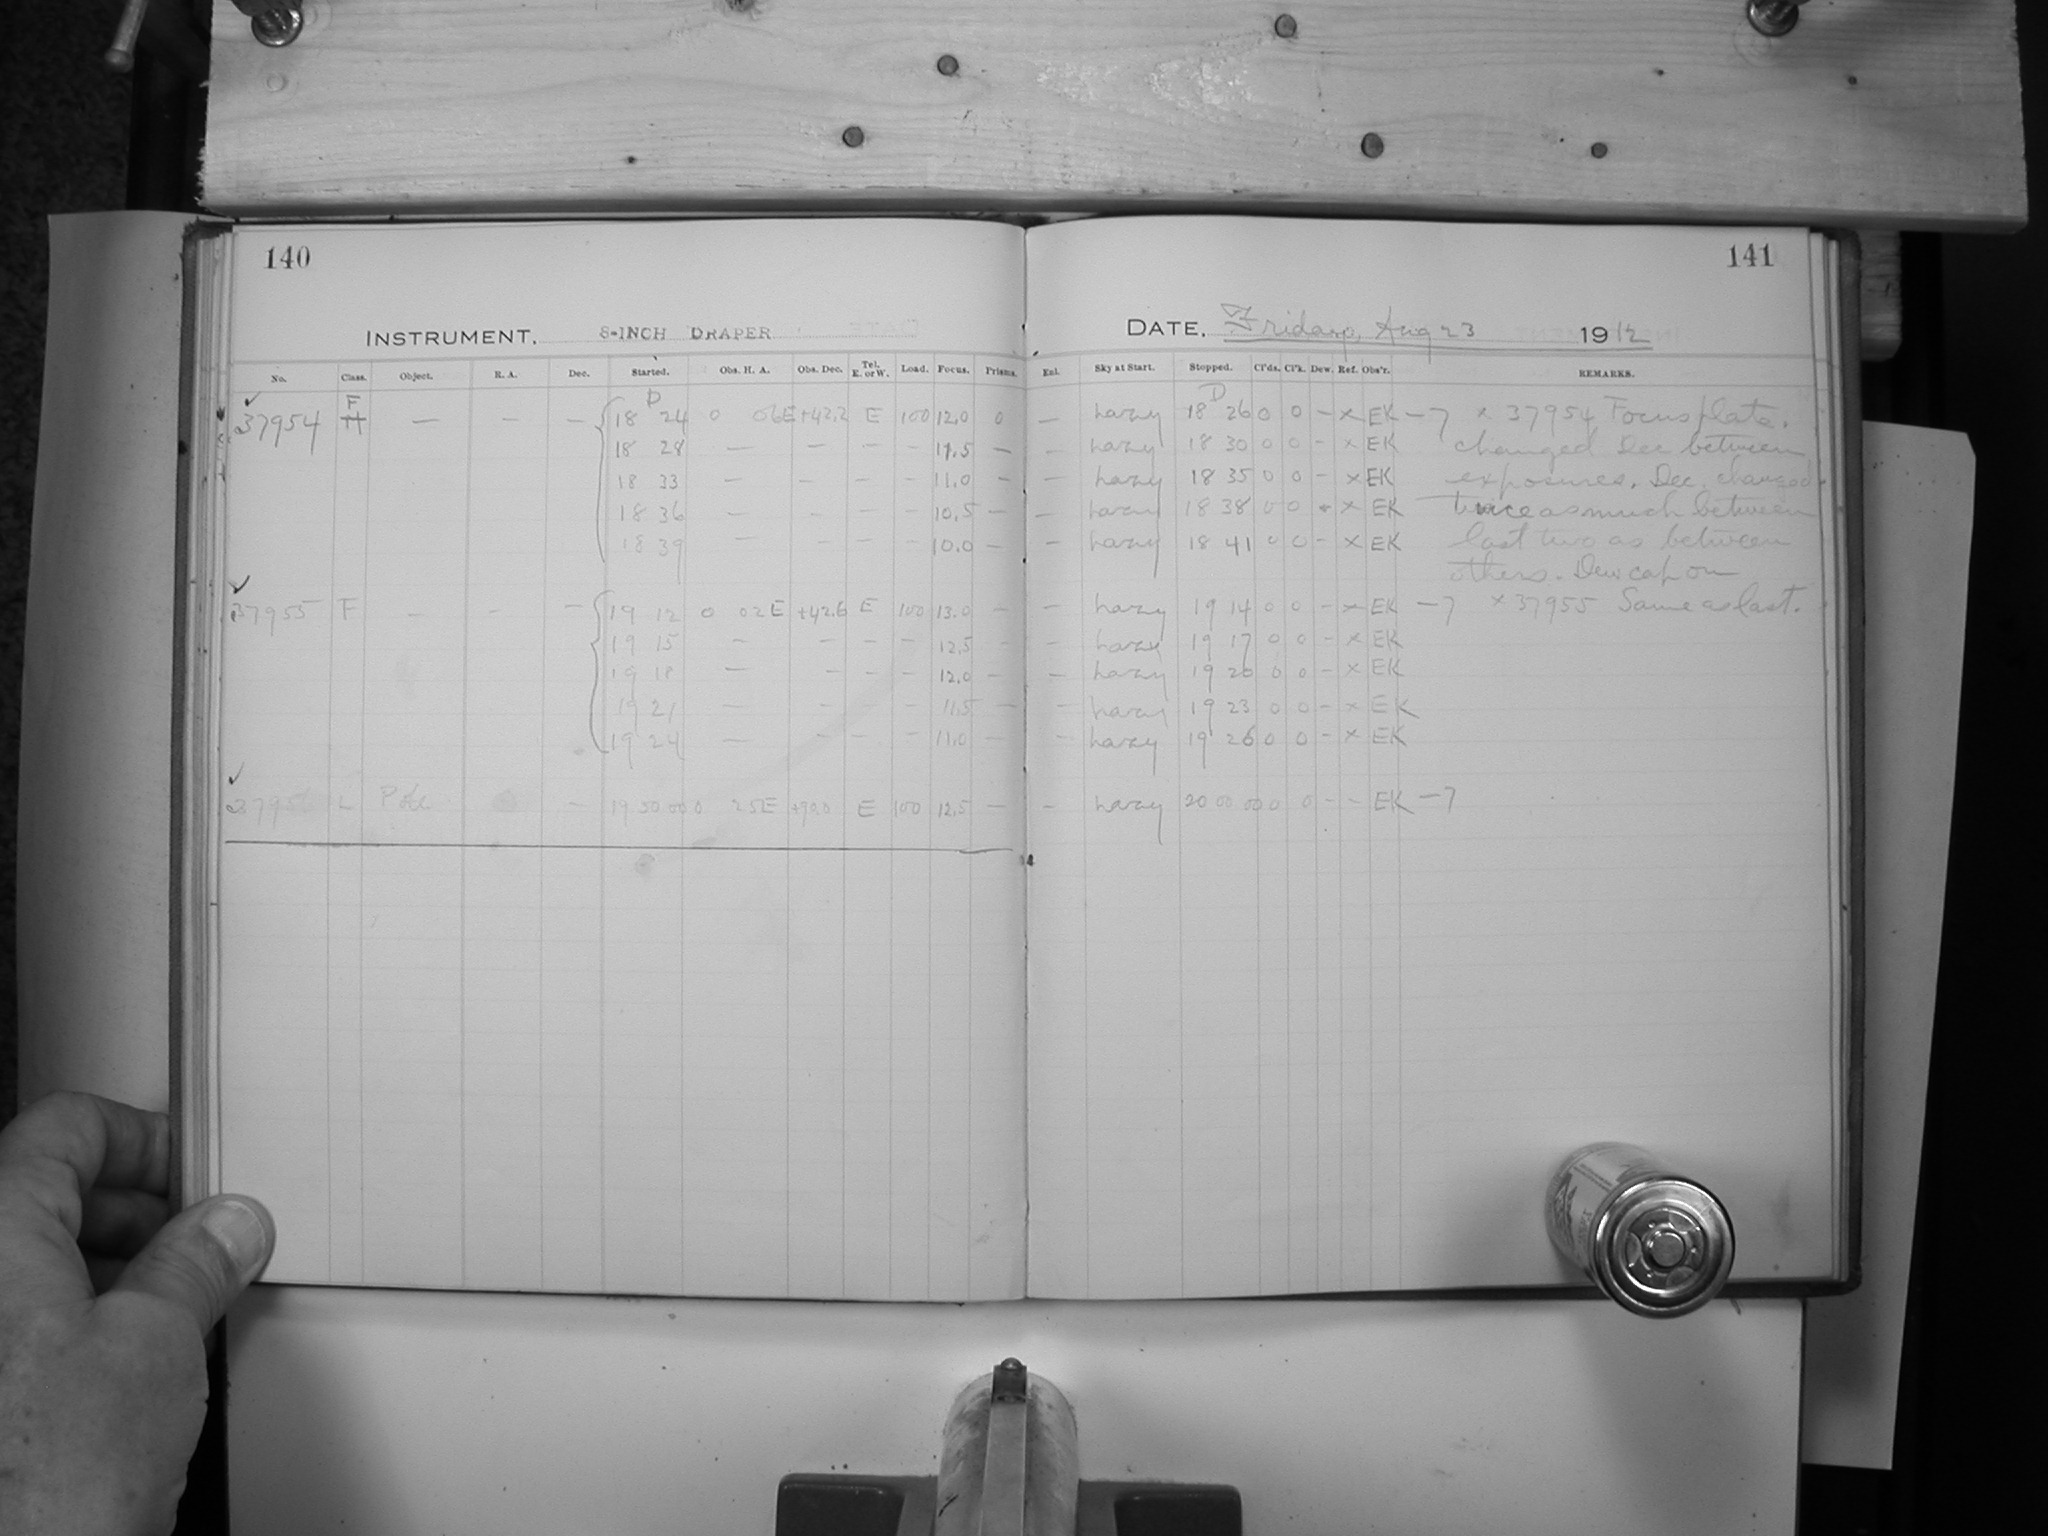 140
141
INSTRUMENT. 8-INCH DRAPER
DATE. Friday, Aug 23 1912
No. Class. Object. R. A. Dec. Started. Obs. H. A. Obs. Dec. Tel. E. or W. Load. Focus. Prisms. Enl. Sky at Start. Stopped. Cl'ds. Cl'k. Dew. Ref. Obs'r. REMARKS.
D D
37954 F H — — — 18 24 0 06E +42.2 E 100 12.0 0 — hazy 18 26 0 0 — x EK — 7 x 37954 Focus plate.
18 28 — — — — 11.5 — — hazy 18 30 0 0 — x EK changed Dec between
18 33 — — — — 11.0 — — hazy 18 35 0 0 — x EK exposures. Dec. changed
18 36 — — — — 10.5 — — hazy 18 38 0 0 x EK twice as much between
18 39 — — — — 10.0 — — hazy 18 41 0 0 — x EK last two as between
others. Dew cap on
37955 F — — — 19 12 0 02E +42.6 E 100 13.0 — — hazy 19 14 0 0 — x EK — 7 x 37955 Same as last.
19 15 — — — — 12.5 — — hazy 19 17 0 0 — x EK
19 18 — — — — 12.0 — — hazy 19 20 0 0 — x EK
19 21 — — — — 11.5 — — hazy 19 23 0 0 — x EK
19 24 — — — — 11.0 — — hazy 19 26 0 0 — x EK
37956 L Pole — 19 50 00 0 25E +90.0 E 100 12.5 — — hazy 20 00 00 0 0 — — EK — 7